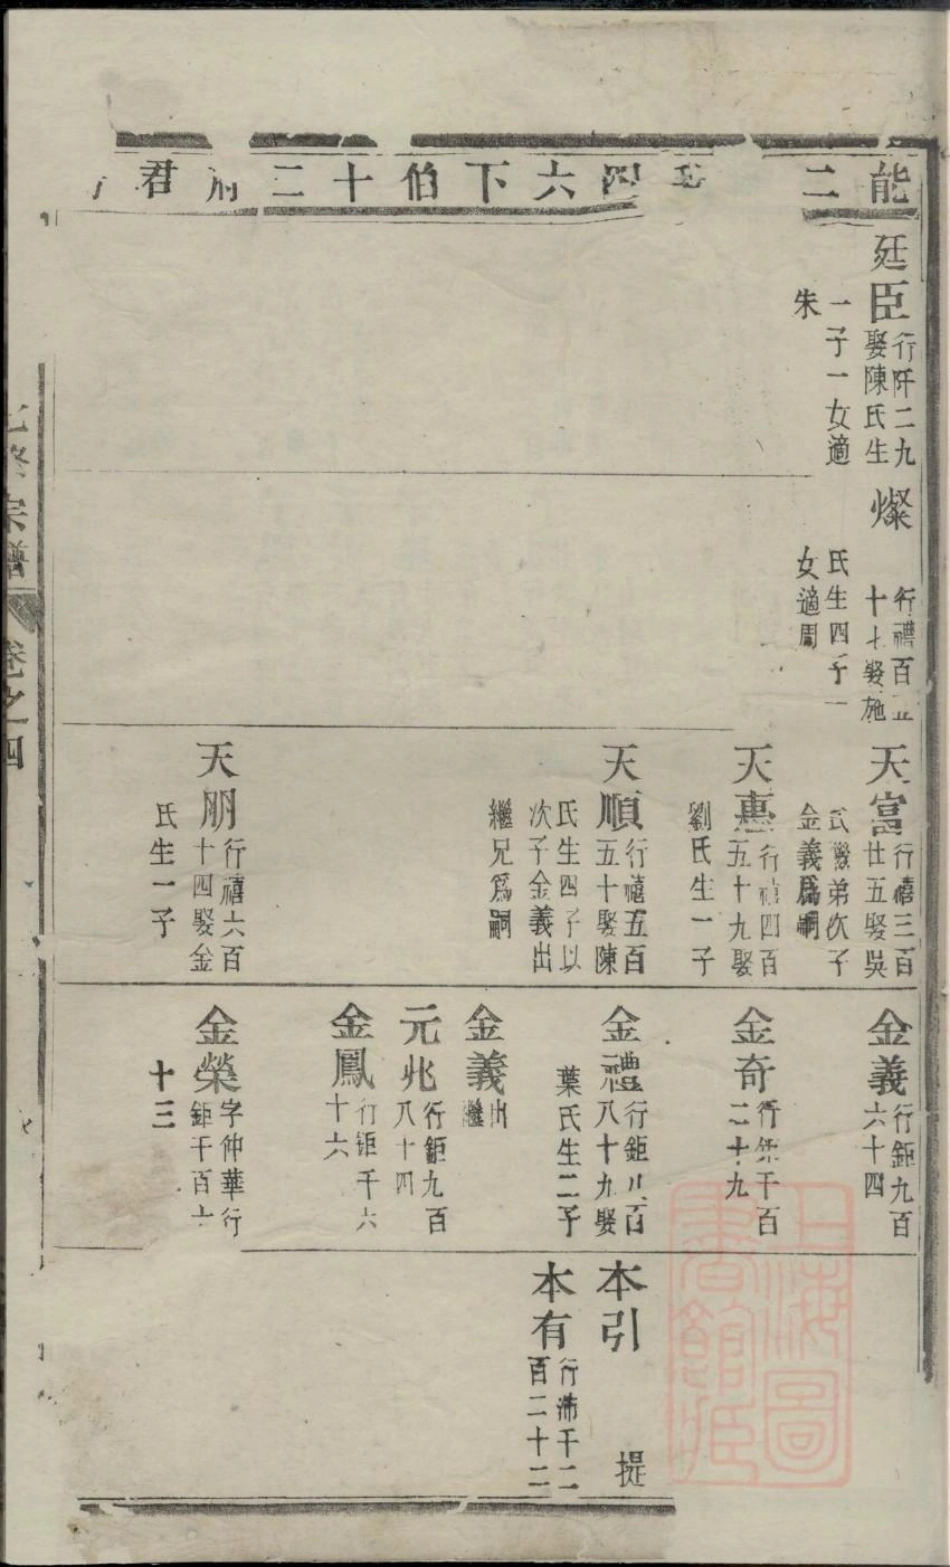 能二 四六下伯十二府君
廷臣
行阡二九
娶陳氏生
一子一女適
朱
燦
行禮百五
十七娶施
氏生四子一
女適周
天富
行禧三百
廿五娶吳
氏繼弟次子
金義爲嗣
天惠
行禧四百
五十九娶
劉氏生一子
天順
行禧五百
五十娶陳
氏生四子以
次子金義出
繼兄爲嗣
天朋
行禧六百
十四娶金
氏生一子
金義
行鉅九百
六十四
金奇
行鉅千百
二十九
金禮
行鉅八百
八十九娶
葉氏生二子
金義
出繼
元兆
行鉅九百
八十四
金鳳
行鉅千六
十六
金榮
字仲華行
鉅千百
十三
本引
提
本有
行沛千二
百二十二
七修宗譜 卷之四
上海圖書館藏